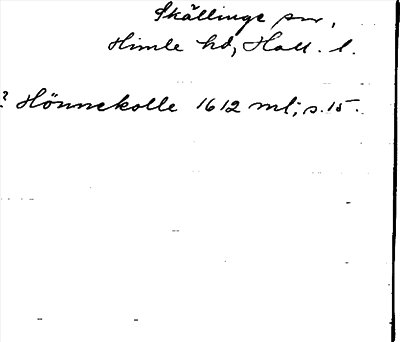 Skällinge sn,
Himle hd, Hall. l.
? Hönnekolle 1612 ml; s. 15.